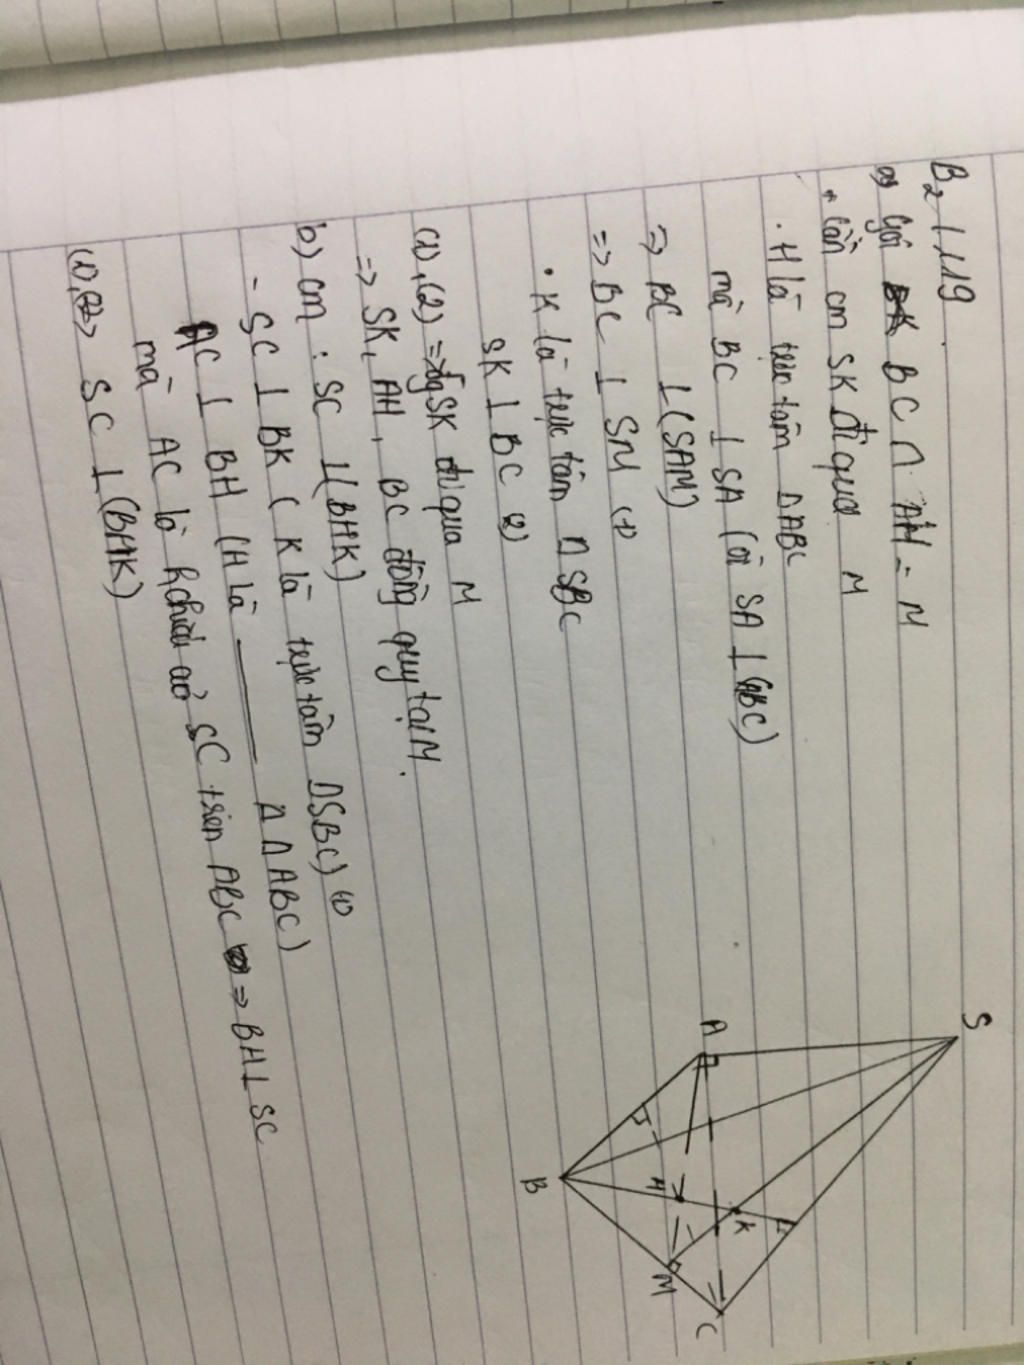 B2/119
a) Gọi BC ∩ AH = M
* Cần cm SK đi qua M
· H là trực tâm ΔABC
mà BC ⊥ SA (vì SA ⊥ (ABC)
=> BC ⊥ (SAM)
=> BC ⊥ SM (1)
• K là trực tâm Δ SBC
SK ⊥ BC (2)
(1), (2) => SK đi qua M
=> SK, AH, BC đồng quy tại M.
b) cm : SC ⊥ (BHK)
- SC ⊥ BK ( K là trực tâm ΔSBC) (1)
AC ⊥ BH (H là ——— Δ ABC)
mà AC là hchiếu SC trên ABC => BH ⊥ SC
(1), (2) => SC ⊥ (BHK)
S
A
H
K
B
M
C